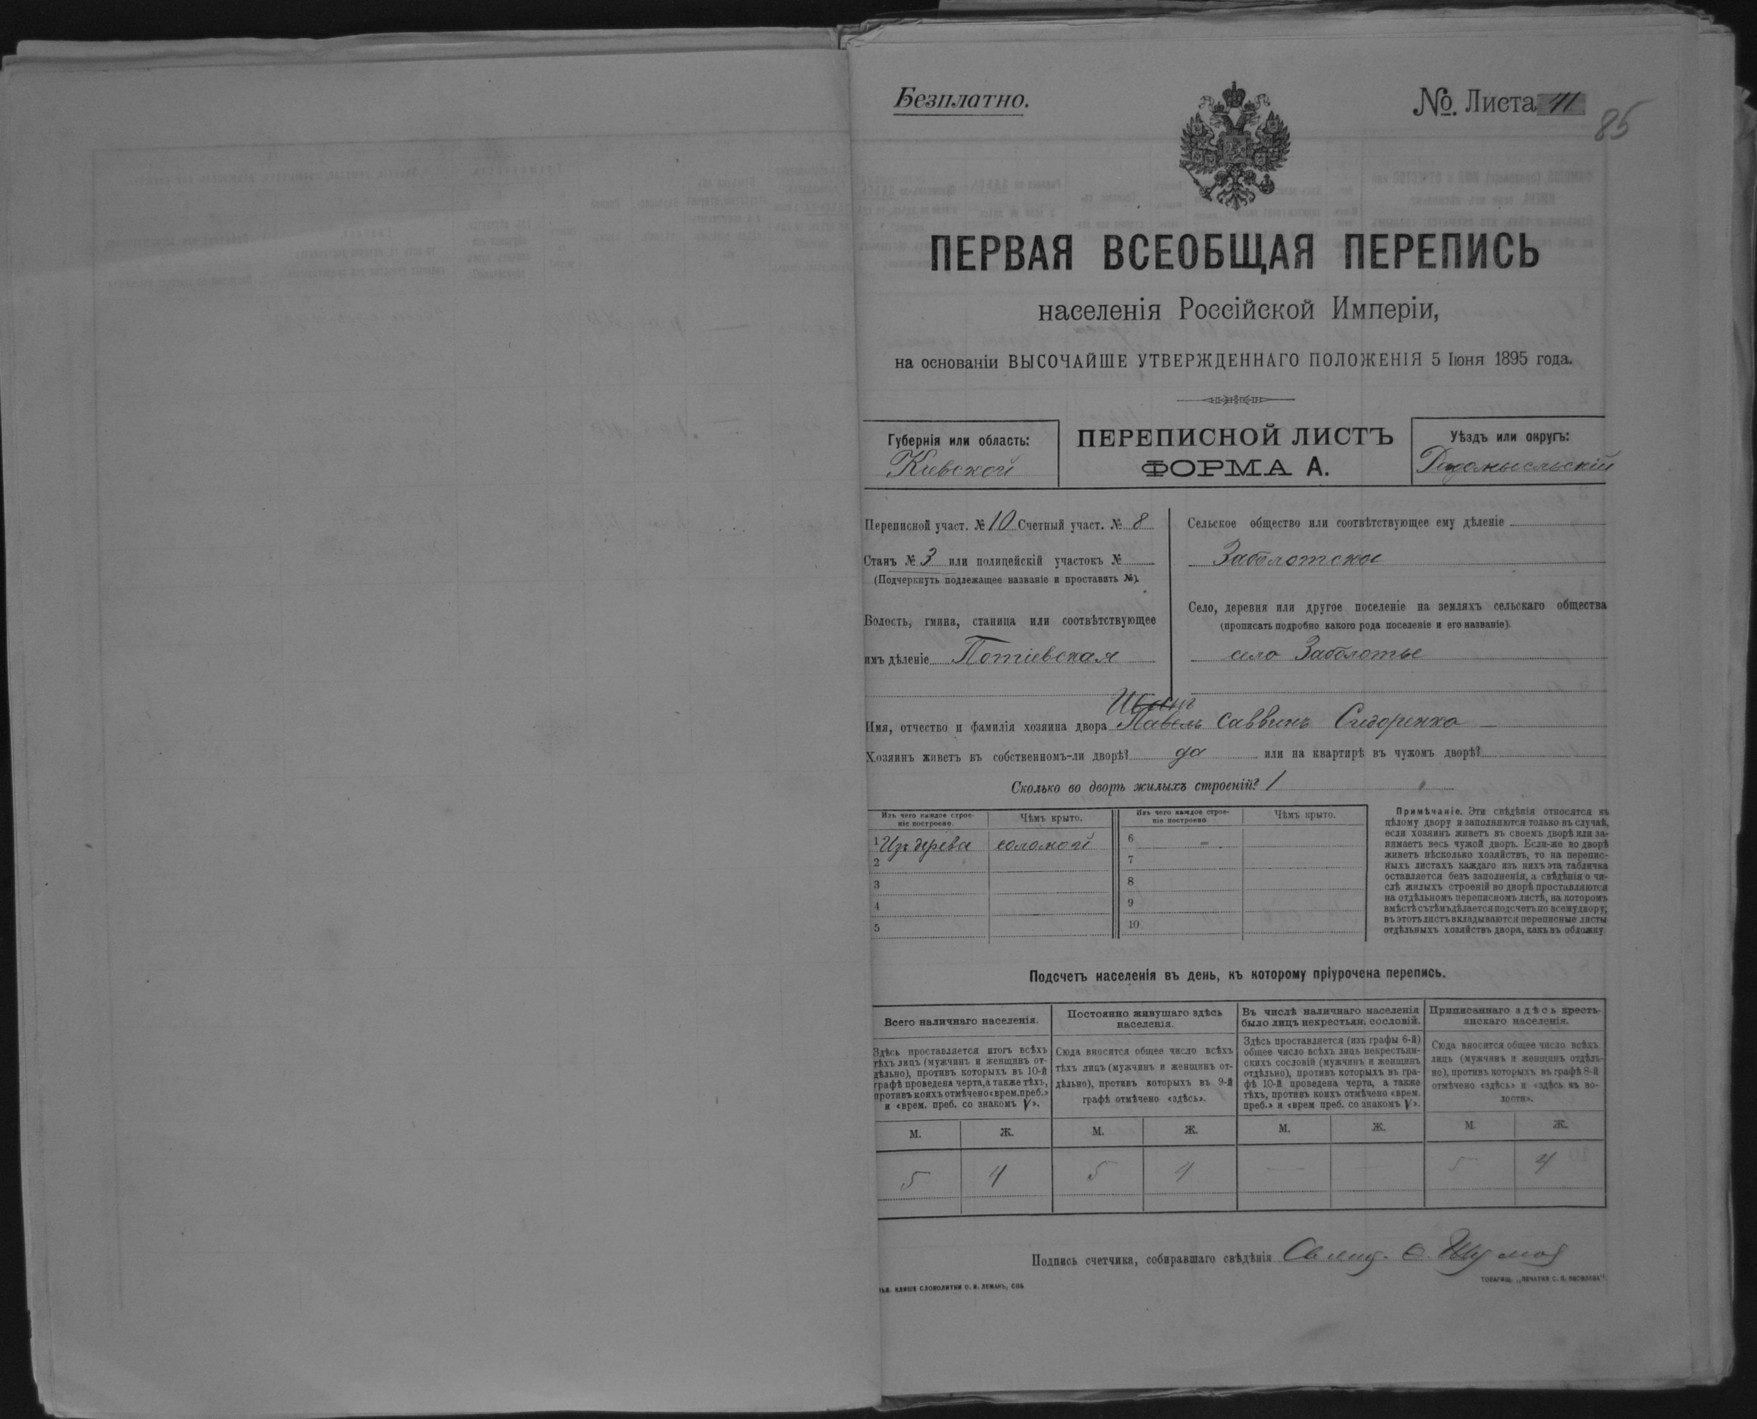 Безплатно.
№. Листа 41
85
ПЕРВАЯ ВСЕОБЩАЯ ПЕРЕПИСЬ
населенія Россійской Имперіи,
на основаніи ВЫСОЧАЙШЕ УТВЕРЖДЕННАГО ПОЛОЖЕНІЯ 5 Іюня 1895 года.
Губернія или область:
Кіевской
ПЕРЕПИСНОЙ ЛИСТЪ
ФОРМА А.
Уѣздъ или округъ:
Радомысльскій
Переписной участ. № 10 Счетный участ. № 8
Станъ № 3 или полицейскій участокъ №
(Подчеркнуть подлежащее названіе и проставить №).
Волость, гмина, станица или соотвѣтствующее
имъ дѣленіе Потіевская
Сельское общество или соотвѣтствующее ему дѣленіе
Заболотское
Село, деревня или другое поселеніе на земляхъ сельскаго общества
(прописать подробно какого рода поселеніе и его названіе).
село Заболотье
Имя, отчество и фамилія хозяина двора Павелъ Саввинъ Сидоренко
Хозяинъ живетъ въ собственномъ-ли дворѣ? да или на квартирѣ въ чужомъ дворѣ?
Сколько во дворѣ жилыхъ строеній? 1
Изъ чего каждое строе-
ніе построено.
Чѣмъ крыто.
Изъ чего каждое строе-
ніе построено.
Чѣмъ крыто.
1 Изъ дерева соломой
2
3
4
5
6 -
7
8
9
10
Примѣчаніе. Эти свѣдѣнія относятся къ
цѣлому двору и заполняются только въ случаѣ,
если хозяинъ живетъ въ своемъ дворѣ или за-
нимаетъ весь чужой дворъ. Если-же во дворѣ
живетъ нѣсколько хозяйствъ, то на перепис-
ныхъ листахъ каждаго изъ нихъ эта табличка
оставляется безъ заполненія, а свѣдѣнія о чи-
слѣ жилыхъ строеній во дворѣ проставляются
на отдѣльномъ переписномъ листѣ, на которомъ
вмѣстѣ съ тѣмъ дѣлается подсчетъ по всему двору;
въ этотъ листъ вкладываются переписные листы
отдѣльныхъ хозяйствъ двора, какъ въ обложку.
Подсчетъ населенія въ день, къ которому пріурочена перепись.
Всего наличнаго населенія.
Здѣсь проставляется итогъ всѣхъ
тѣхъ лицъ (мужчинъ и женщинъ от-
дѣльно), противъ которыхъ въ 10-й
графѣ проведена черта, а также тѣхъ,
противъ коихъ отмѣчено «врем. преб.»
и «врем. преб. со знакомъ V».
Постоянно живущаго здѣсь
населенія.
Сюда вносится общее число всѣхъ
тѣхъ лицъ (мужчинъ и женщинъ от-
дѣльно), противъ которыхъ въ 9-й
графѣ отмѣчено «здѣсь».
Въ числѣ наличнаго населенія
было лицъ некрестьян. сословій.
Здѣсь проставляется (изъ графы 6-й)
общее число всѣхъ лицъ некрестьян-
скихъ сословій (мужчинъ и женщинъ
отдѣльно), противъ которыхъ въ гра-
фѣ 10-й проведена черта, а также
тѣхъ, противъ коихъ отмѣчено «врем.
преб.» и «врем преб. со знакомъ V».
Приписаннаго здѣсь кресть-
янскаго населенія.
Сюда вносится общее число всѣхъ
лицъ (мужчинъ и женщинъ отдѣль-
но), противъ которыхъ въ графѣ 8-й
отмѣчено «здѣсь» и «здѣсь въ во-
лости».
М. Ж. М. Ж. М. Ж. М. Ж.
5 4 5 4 — — 5 4
Подпись счетчика, собиравшаго свѣдѣнія
КЛИШЕ СЛОВОЛИТНИ О. И. ЛЕМАНЪ, СПБ.
ТОВАРИЩ. „ПЕЧАТНЯ С. П. ЯКОВЛЕВА"